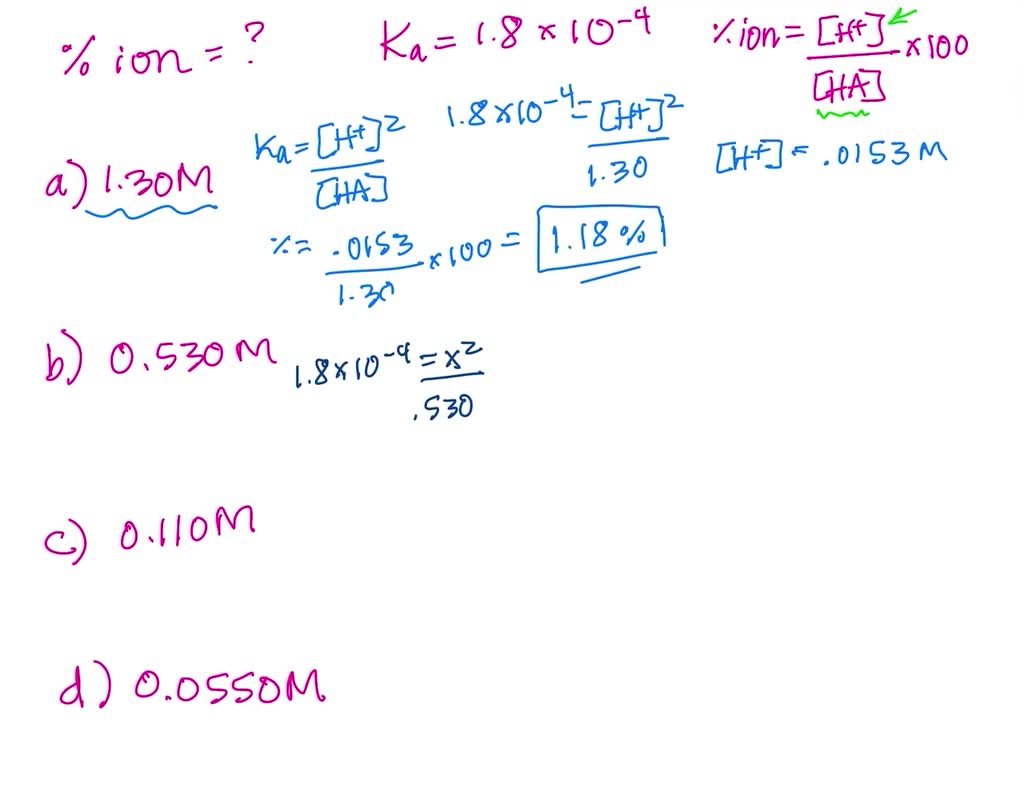 % ion = ? Ka = 1.8 × 10⁻⁴ % ion = [H+]/[HA] × 100
a) 1.30M Ka = [H+]²/[HA] 1.8×10⁻⁴ = [H+]²/1.30 [H+] = .0153 M
% = .0153/1.30 × 100 = 1.18%
b) 0.530M 1.8×10⁻⁴ = x²/.530
c) 0.110M
d) 0.0550M